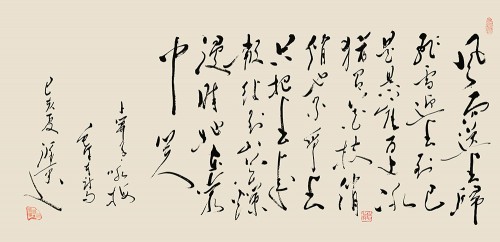 风雨送春归
飞雪迎春到已
是悬崖百丈冰
犹有花枝俏
俏也不争春
只把春来报
待到山花烂
漫时她在丛
中笑
卜算子咏梅
毛泽东
己亥夏